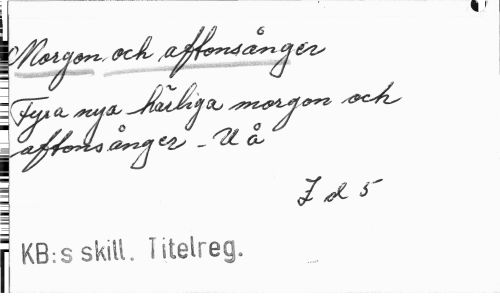 Morgon och aftonsånger
Fyra nya härliga morgon och
aftonsånger - U å
I d 5
KB:s skill. Titelreg.